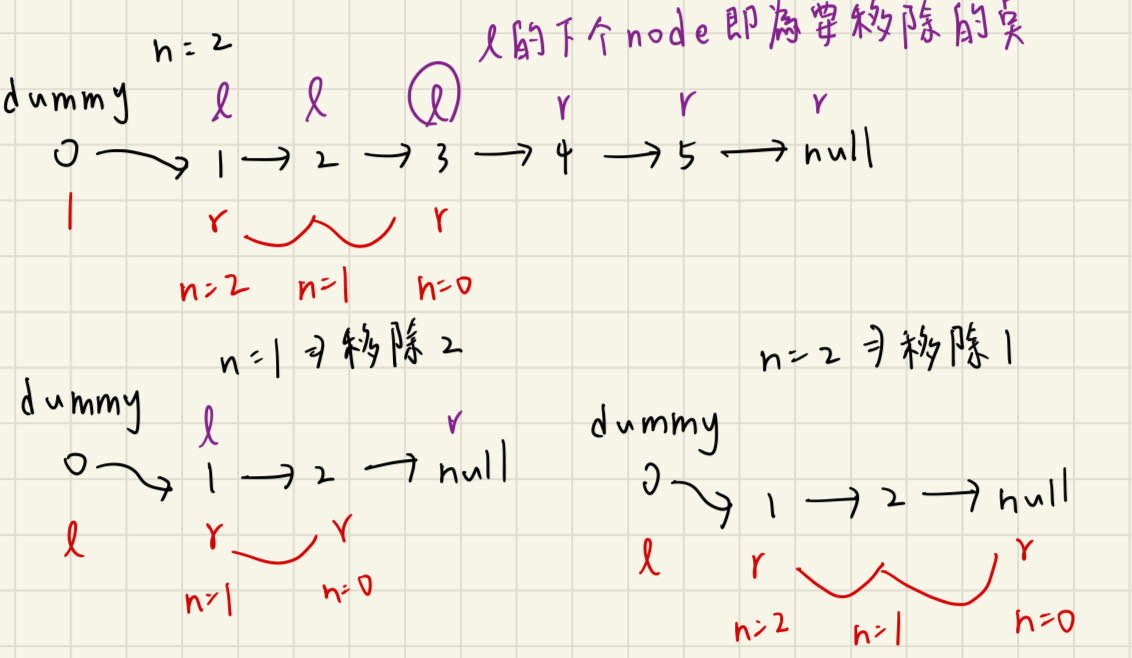 n = 2
l的下个node即為要移除的點
dummy l l l r r r
0 → 1 → 2 → 3 → 4 → 5 → null
l r r
n=2 n=1 n=0
n=1 ⇒ 移除 2
dummy l r
0 → 1 → 2 → null
l r r
n=1 n=0
n=2 ⇒ 移除 1
dummy
0 → 1 → 2 → null
l r r
n=2 n=1 n=0